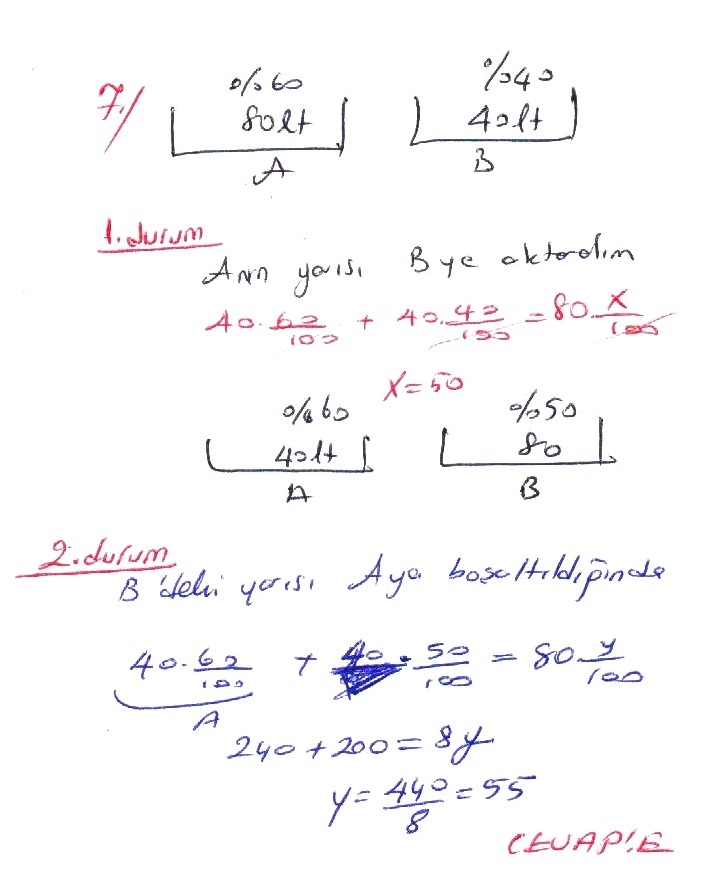 7/
%60 %40
80lt 40lt
A B
1.durum
A'nın yarısı B ye aktaralım
40.60/100 + 40.40/100 = 80.x/100
x=50
%60 %50
40lt 80
A B
2.durum
B'deki yarısı A ya boşaltıldığında
40.60/100 + 40.50/100 = 80.y/100
A
240+200=8y
y=440/8=55
CEVAP:E